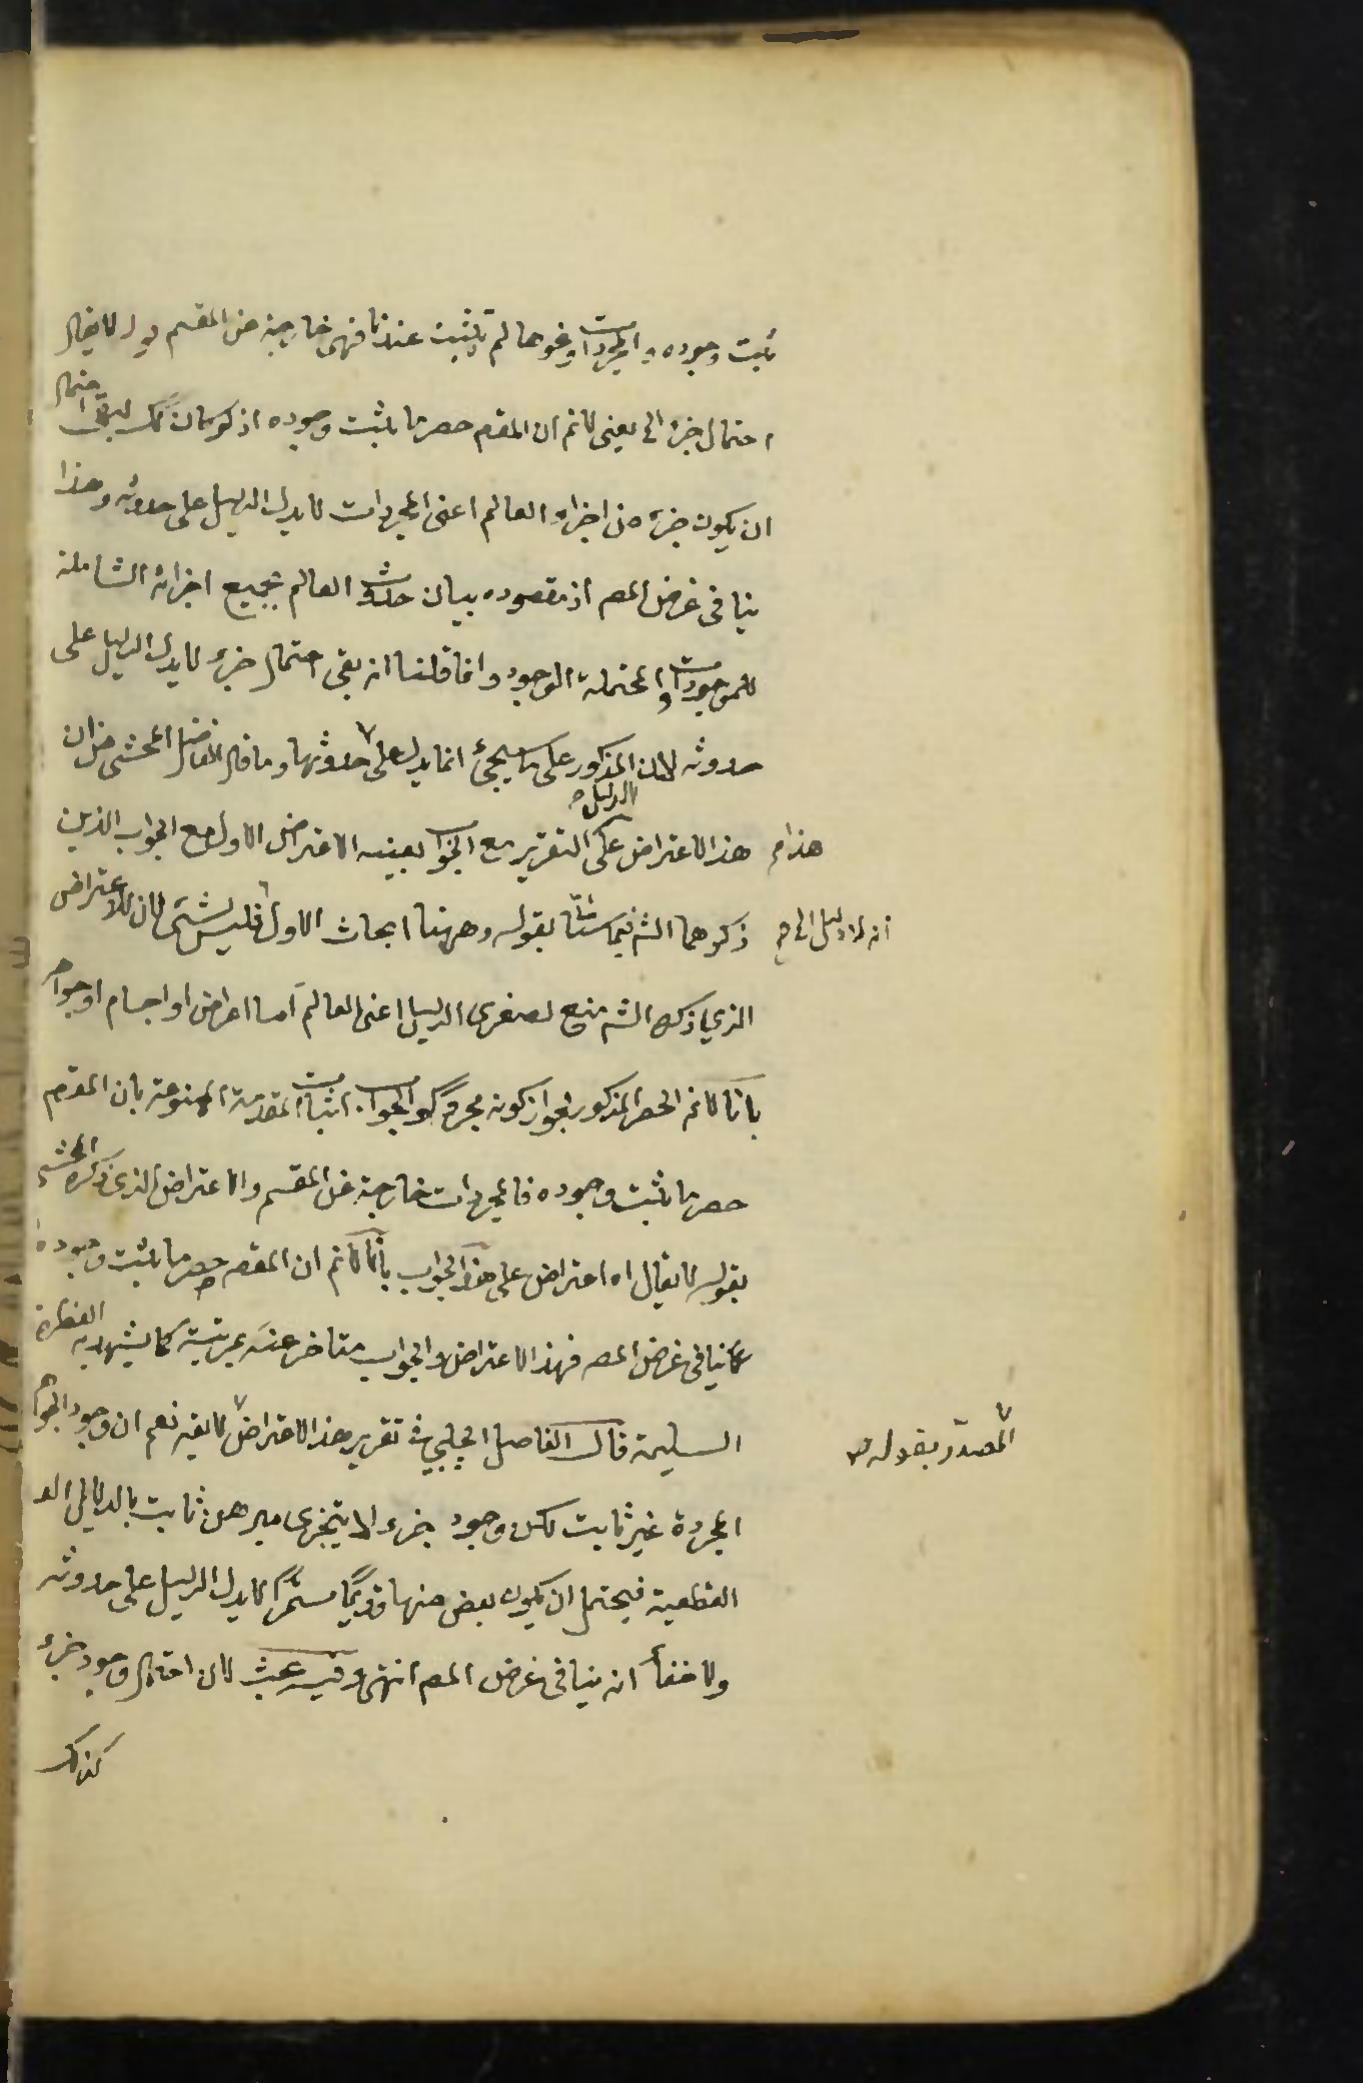 ثبت وجوده والمجردات ونحوها لم يثبت عندنا فهى خارجة عن المقسم قوله لا يقال
احتمال جزء الى يعنى لانم ان المقصم حصر ما يثبت وجوده اذ لو كان كك لبقى احتمال
ان يكون جزء من اجزاء العالم اعنى المجردات لا يدل الدليل على حدوثه وهذا
ينافى غرض المص اذ مقصوده بيان حدوث العالم بجميع اجزائه الشاملة
للموجودات والمحتملة الوجود وانما قلنا انه بقى احتمال جزء لا يدل الدليل على
حدوثه لان الدليل المذكور على ما سيجئ انما يدل على حدوثها وما قال الفاضل المحشى من ان
هذا الاعتراض على التقرير مع الجواب بعينه الاعتراض الاول مع الجواب الذين
ذكرهما الشم فيما سيأتى بقوله وههنا ابحاث الاول فليس بشئ لان الاعتراض
هذام
انه لا دليل الى
الذى ذكره الشم منع لصغرى الدليل اعنى العالم اما اعراض او اجسام او جواهر
بانا لانم الحصر المذكور لجواز كونه مجردا والجواب اثبات المقدمة الممنوعة بان المقصم
حصر ما يثبت وجوده فالمجردات خارجة عن المقسم والاعتراض الذى ذكره المحشى
بقوله لا يقال اه اعتراض على هذا الجواب بانا لانم ان المقصم حصر ما يثبت وجوده
لانه ينافى غرض المص فهذا الاعتراض والجواب متأخر عنه بمرتبة كما يشهد به الفطرة
السليمة قال الفاضل الچلبى فى تقرير هذا الاعتراض لا يقه نعم ان وجود الجواهر
المصدر بقوله
المجردة غير ثابت لكن وجود جزء لا يتجزى مبرهن ثابت بالدلائل
القطعية فيحتمل ان يكون بعض منها قديما مستمرا لا يدل الدليل على حدوثه
ولا خفأ انه ينافى غرض المص انتهى وفيه بحث لان احتمال وجود جزء
كذلك